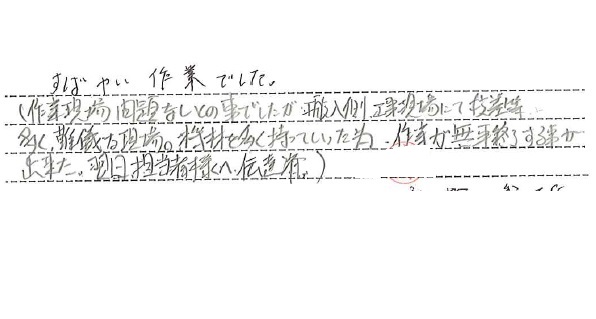 すばやい作業でした。
(作業現場問題なしとの事でしたが 搬入側 工事現場にて段差等
多く、難儀する現場。機材を多く持っていった為、作業が無事終了する事が
出来た。翌日担当者様へ伝達済。)